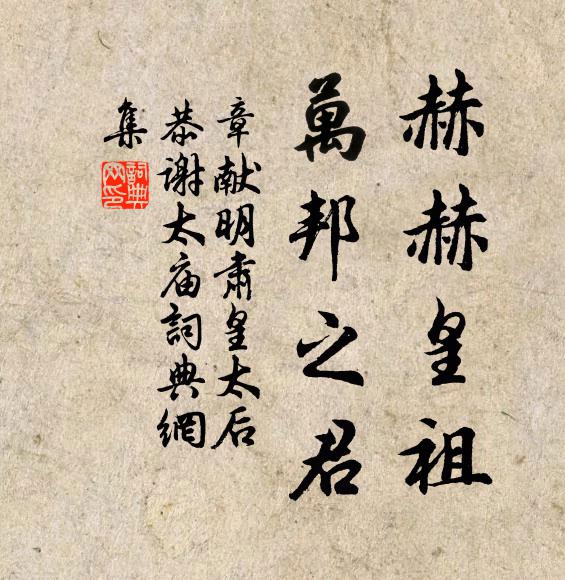 赫赫皇祖
萬邦之君
章献明肅皇太后
恭谢太庙詞典網
集
詞典
网印